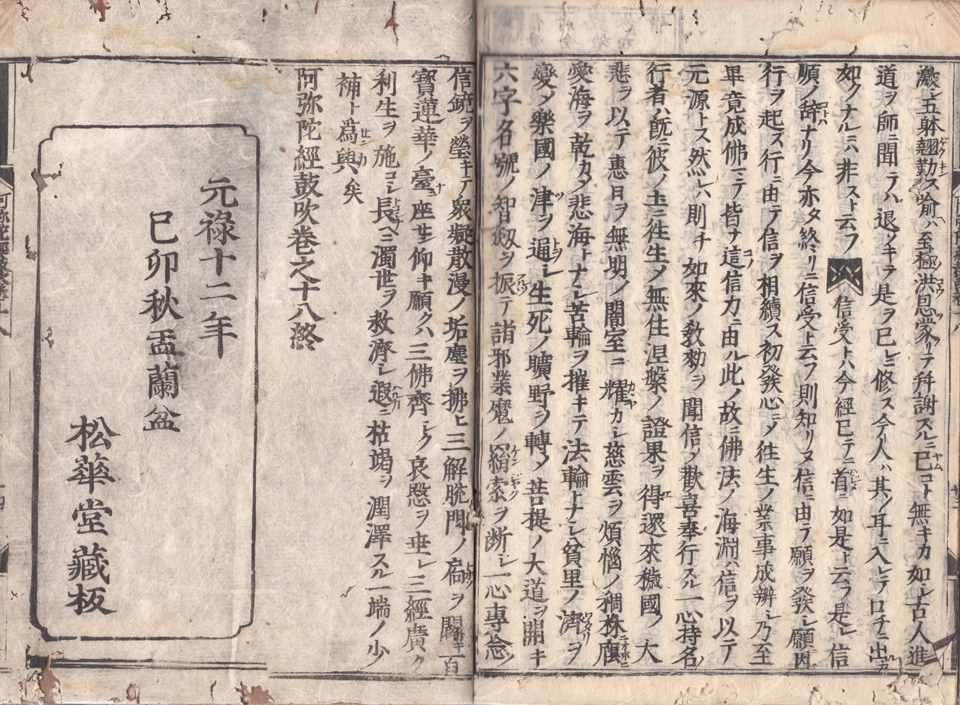 激シ五躰翹勤ス喩ハ至極洪恩蒙リテ拜謝スルニ已コト無キカ如シ古人進
道ヲ師ニ聞テハ退ノキヲ是ヲ已ニ修ス今人ハ其ノ耳ニ入レテ口チニ出
如クナルニハ非スト云フ 信受トハ今經已テニ首ニ如是ト云フ是レ信
順ノ辞ナリ今亦タ終リニ信受ト云フ則知リヌ信ニ由テ願ヲ發シ願因
行ヲ起ス行ニ由テ信ヲ相續ス初發心ニノ往生ノ業事成辨シ乃至
畢竟成佛ニテ皆ナ這信力ニ由ル此ノ故ニ佛法ノ海渊ハ信ヲ以テ
元源トス然レハ則チ如來ノ教勅ヲ聞信ノ歡喜奉行スル一心持名ノ
行者ハ既ニ彼ノ土ニ往生ノ無住涅槃ノ證果ヲ得還來穢國ノ大
悲ヲ以テ惠日ヲ無明ノ闇室ニ耀カシ慈雲ヲ煩惱ノ稠林ニ
愛海ヲ乾カメ悲海トナシ苦輪ヲ摧キテ法輪トナシ貧里ノ濟ヲ
變メ樂國ノ津ヲ通シ生死ノ曠野ヲ轉メ菩提ノ大道ヲ開キ
六字名號ノ智劔ヲ振テ諸邪業魔ノ羂索ヲ断シ一心專念ノ
信鏡ヲ瑩キテ衆疑散漫ノ垢塵ヲ拂ヒ三解脱門ノ扃ヲ闢キ百
寳蓮華ノ臺ナ座セン仰キ願クハ三佛齊シク哀愍ヲ垂レ三經廣ク
利生ヲ施コシ長ヘニ濁世ヲ救濟シ遐ニ枯竭ヲ潤澤スル一端ノ少
補ト爲ン歟矣
阿弥陀經鼓吹卷之十八終
元祿十二年
巳卯秋盂蘭盆
松華堂藏板